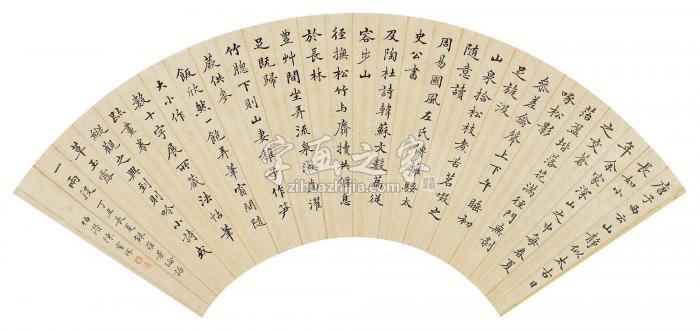 唐子西云山靜似太古日
長如小
年余家深山之中每春夏
之交蒼
蘚盈堦落花滿徑門無剝
啄松影
參差禽聲上下午睡初
足旋汲
山泉拾松枝煮苦茗啜之
隨意讀
周易國風左氏傳離騷太
史公書
及陶杜詩韓蘇文數篇從
容步山
徑撫松竹与麛犢共偃息
於長林
豐草間坐弄流泉漱齒濯
足既歸
竹牕下則山妻稚子作筍
蕨供麥
飯欣然一飽弄筆窗間隨
大小作
數十字展所藏法帖筆
跡畫卷
縱觀之興到則吟小詩或
草玉露
一兩段
丁丑長夏錄羅景綸語
伯潛陳寶琛
字画之家
zihuazhijia.com